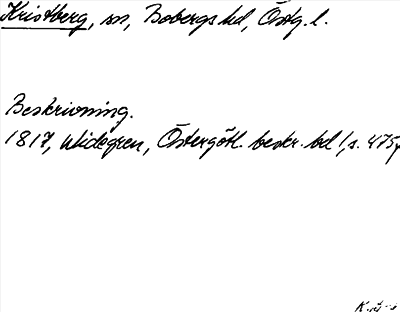 Kristberg, sn, Bobergs hd, Östg. l.
Beskrivning.
1817, Widegren, Östergötl. beskr. bd 1, s. 475,